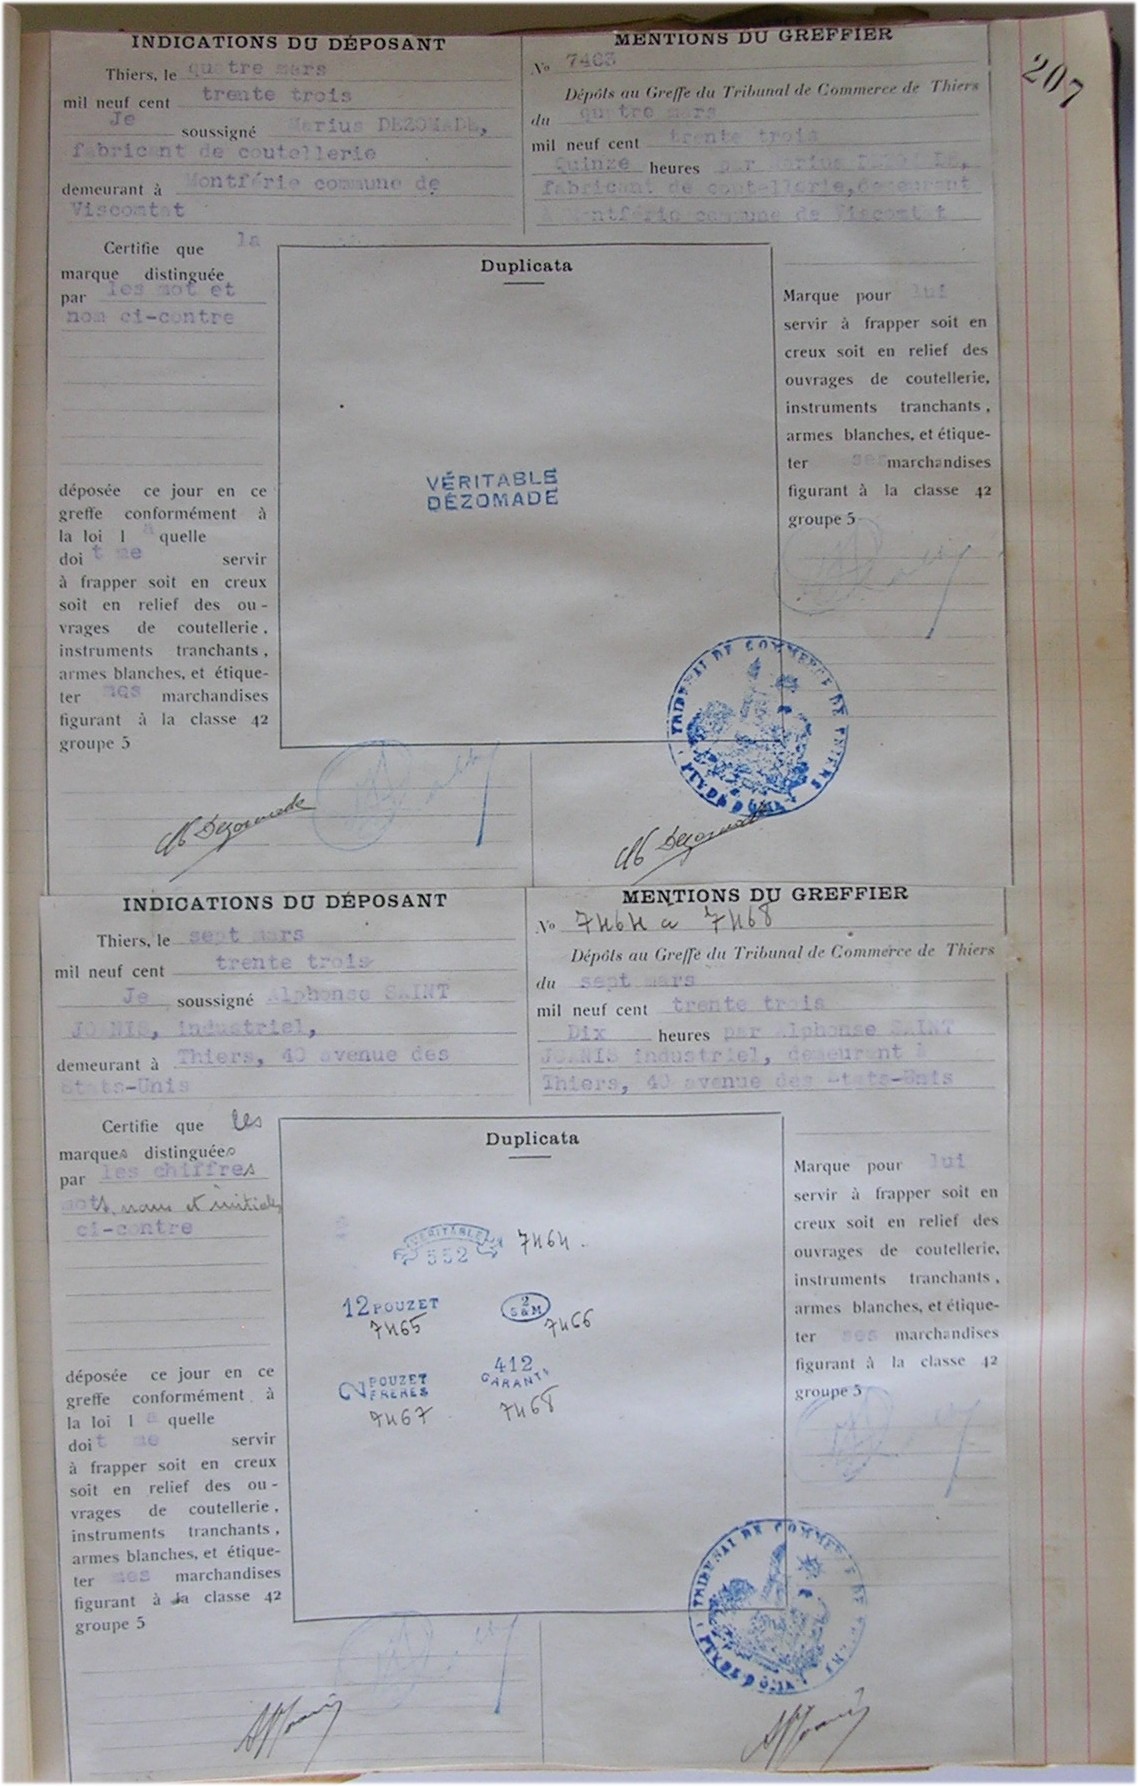 207
INDICATIONS DU DÉPOSANT
Thiers, le quatre mars
mil neuf cent trente trois
Je soussigné Marius DEZOMADE,
fabricant de coutellerie
demeurant à Montférie commune de
Viscomtat
MENTIONS DU GREFFIER
No 7463
Dépôts au Greffe du Tribunal de Commerce de Thiers
du quatre mars
mil neuf cent trente trois
Quinze heures par Marius DEZOMADE,
fabricant de coptellerie, demeurant
à Montférie commune de Viscomtat
Certifie que la
marque distinguée
par les mot et
nom ci-contre
déposée ce jour en ce
greffe conformément à
la loi l a quelle
doit me servir
à frapper soit en creux
soit en relief des ou-
vrages de coutellerie,
instruments tranchants,
armes blanches, et étique-
ter mes marchandises
figurant à la classe 42
groupe 5
Duplicata
VÉRITABLE
DÉZOMADE
Marque pour lui
servir à frapper soit en
creux soit en relief des
ouvrages de coutellerie,
instruments tranchants,
armes blanches, et étique-
ter ses marchandises
figurant à la classe 42
groupe 5
TRIBUNAL DE COMMERCE DE THIERS
PUY-DE-DÔME
Dezomade
Dezomade
INDICATIONS DU DÉPOSANT
Thiers, le sept mars
mil neuf cent trente trois
Je soussigné Alphonse SAINT
JOANIS, industriel,
demeurant à Thiers, 40 avenue des
Etats-Unis
MENTIONS DU GREFFIER
No 7464 a 7468
Dépôts au Greffe du Tribunal de Commerce de Thiers
du sept mars
mil neuf cent trente trois
Dix heures par Alphonse SAINT
JOANIS industriel, demeurant à
Thiers, 40 avenue des Etats-Unis
Certifie que les
marques distinguées
par les chiffres
mots, noms et initiales
ci-contre
déposée ce jour en ce
greffe conformément à
la loi l a quelle
doit me servir
à frapper soit en creux
soit en relief des ou-
vrages de coutellerie,
instruments tranchants,
armes blanches, et étique-
ter mes marchandises
figurant à la classe 42
groupe 5
Duplicata
VÉRITABLE
552 7464
12 POUZET 7465
2
S&M 7466
2 POUZET
FRÈRES 7467
412
GARANTI 7468
Marque pour lui
servir à frapper soit en
creux soit en relief des
ouvrages de coutellerie,
instruments tranchants,
armes blanches, et étique-
ter ses marchandises
figurant à la classe 42
groupe 5
TRIBUNAL DE COMMERCE DE THIERS
PUY-DE-DÔME